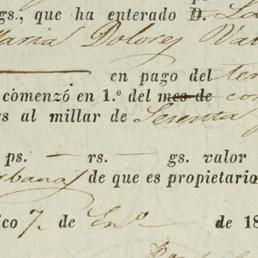 gs., que ha enterado D.
Maria Dolores
en pago del
comenzó en 1.º del mes de
s al millar de
ps. — rs. — gs. valor
de que es propietario
ico 7 de En.o de 18